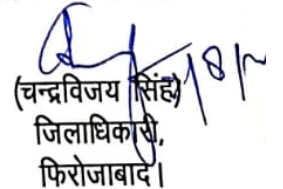 (चन्द्रविजय सिंह)
जिलाधिकारी,
फिरोजाबाद।